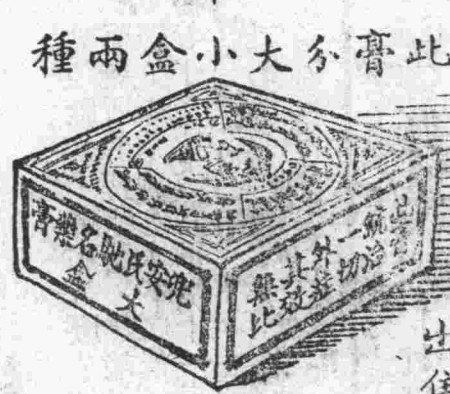 此膏分大小盒兩種
兜安氏馳名藥膏
大盒
此膏
統治
一切
外症
其效
無比
出